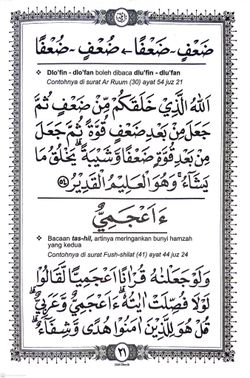 ضَعْفٍ - ضَعْفًا ← ضُعْفٍ - ضُعْفًا
Dlo'fin - dlo'fan boleh dibaca dlu'fin - dlu'fan
Contohnya di surat Ar Ruum (30) ayat 54 juz 21
اَللّٰهُ الَّذِيْ خَلَقَكُمْ مِّنْ ضَعْفٍ ثُمَّ
جَعَلَ مِنْۢ بَعْدِ ضَعْفٍ قُوَّةً ثُمَّ جَعَلَ
مِنْۢ بَعْدِ قُوَّةٍ ضَعْفًا وَّشَيْبَةً ۗ يَخْلُقُ مَا
يَشَاۤءُ ۚ وَهُوَ الْعَلِيْمُ الْقَدِيْرُ ﴿٥٤﴾
ءَاَعْجَمِيٌّ
Bacaan tas-hil, artinya meringankan bunyi hamzah
yang kedua
Contohnya di surat Fush-shilat (41) ayat 44 juz 24
وَلَوْ جَعَلْنٰهُ قُرْاٰنًا اَعْجَمِيًّا لَّقَالُوْا
لَوْلَا فُصِّلَتْ اٰيٰتُهٗ ۗ ءَاَعْجَمِيٌّ وَّعَرَبِيٌّ ۗ
قُلْ هُوَ لِلَّذِيْنَ اٰمَنُوْا هُدًى وَّشِفَاۤءٌ ۗ
٢٦